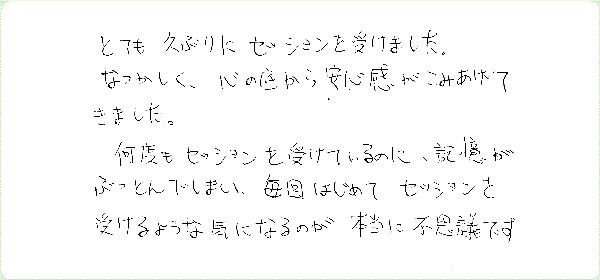 とても 久ぶりに セッションを受けました。
なつかしく、心の底から安心感がこみあげて
きました。
何度もセッションを受けているのに、記憶が
ぶっとんでしまい、毎回はじめて セッションを
受けるような気になるのが 本当に不思議です